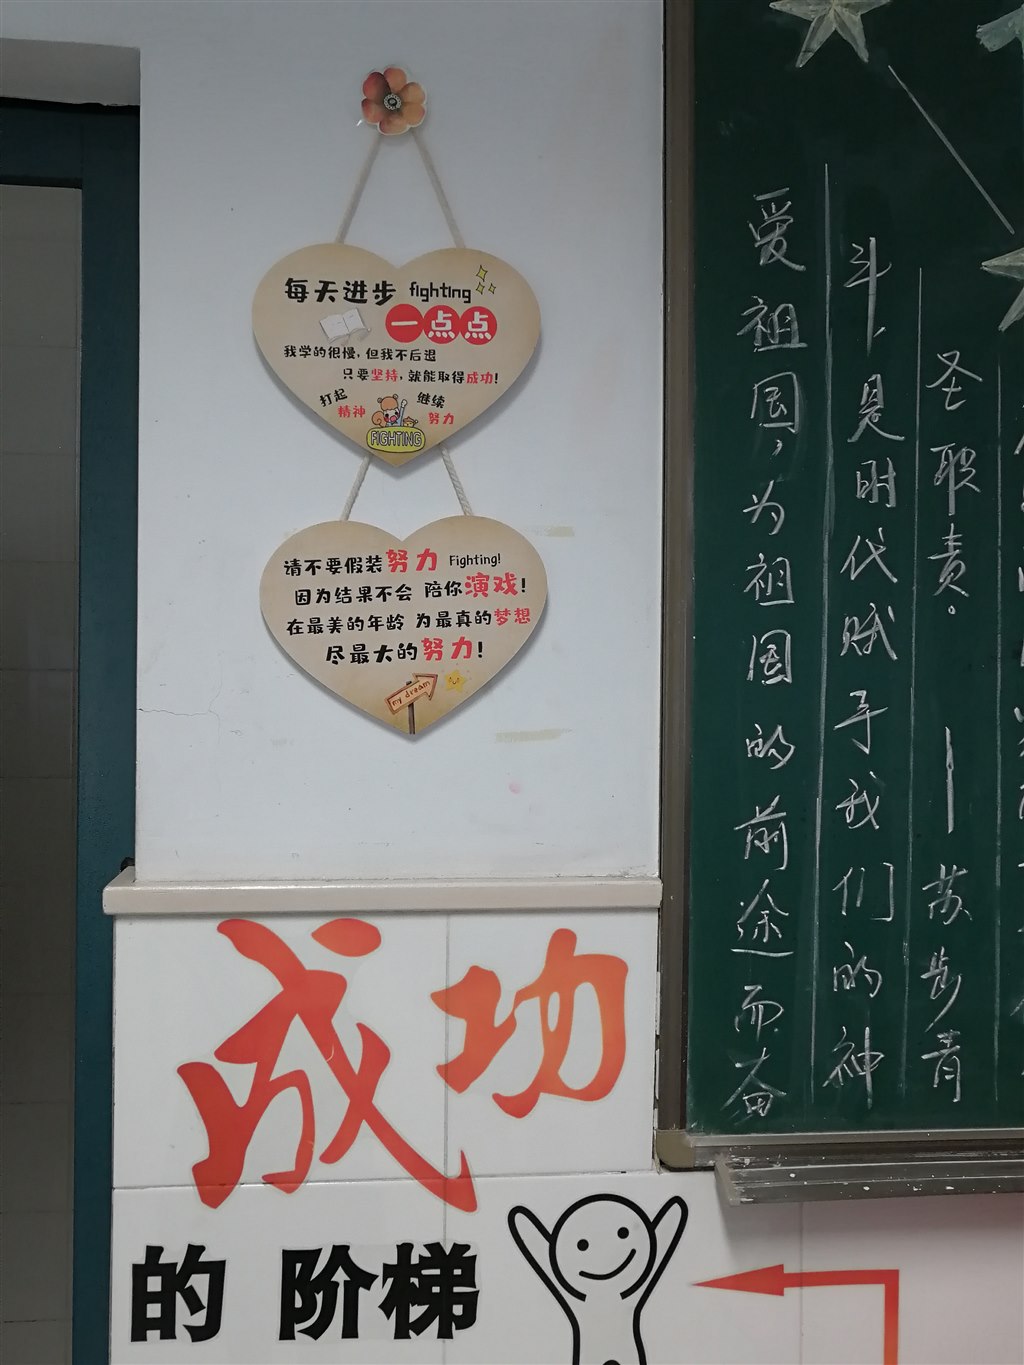 每天进步 fighting
一点点
我学的很慢，但我不后退
只要坚持，就能取得成功！
打起 继续
精神 努力
FIGHTING
请不要假装努力 Fighting!
因为结果不会 陪你演戏！
在最美的年龄 为最真的梦想
尽最大的努力！
my dream
成功
的 阶梯
爱祖国，为祖国的前途而奋
斗，是时代赋予我们的神
圣职责。——苏步青